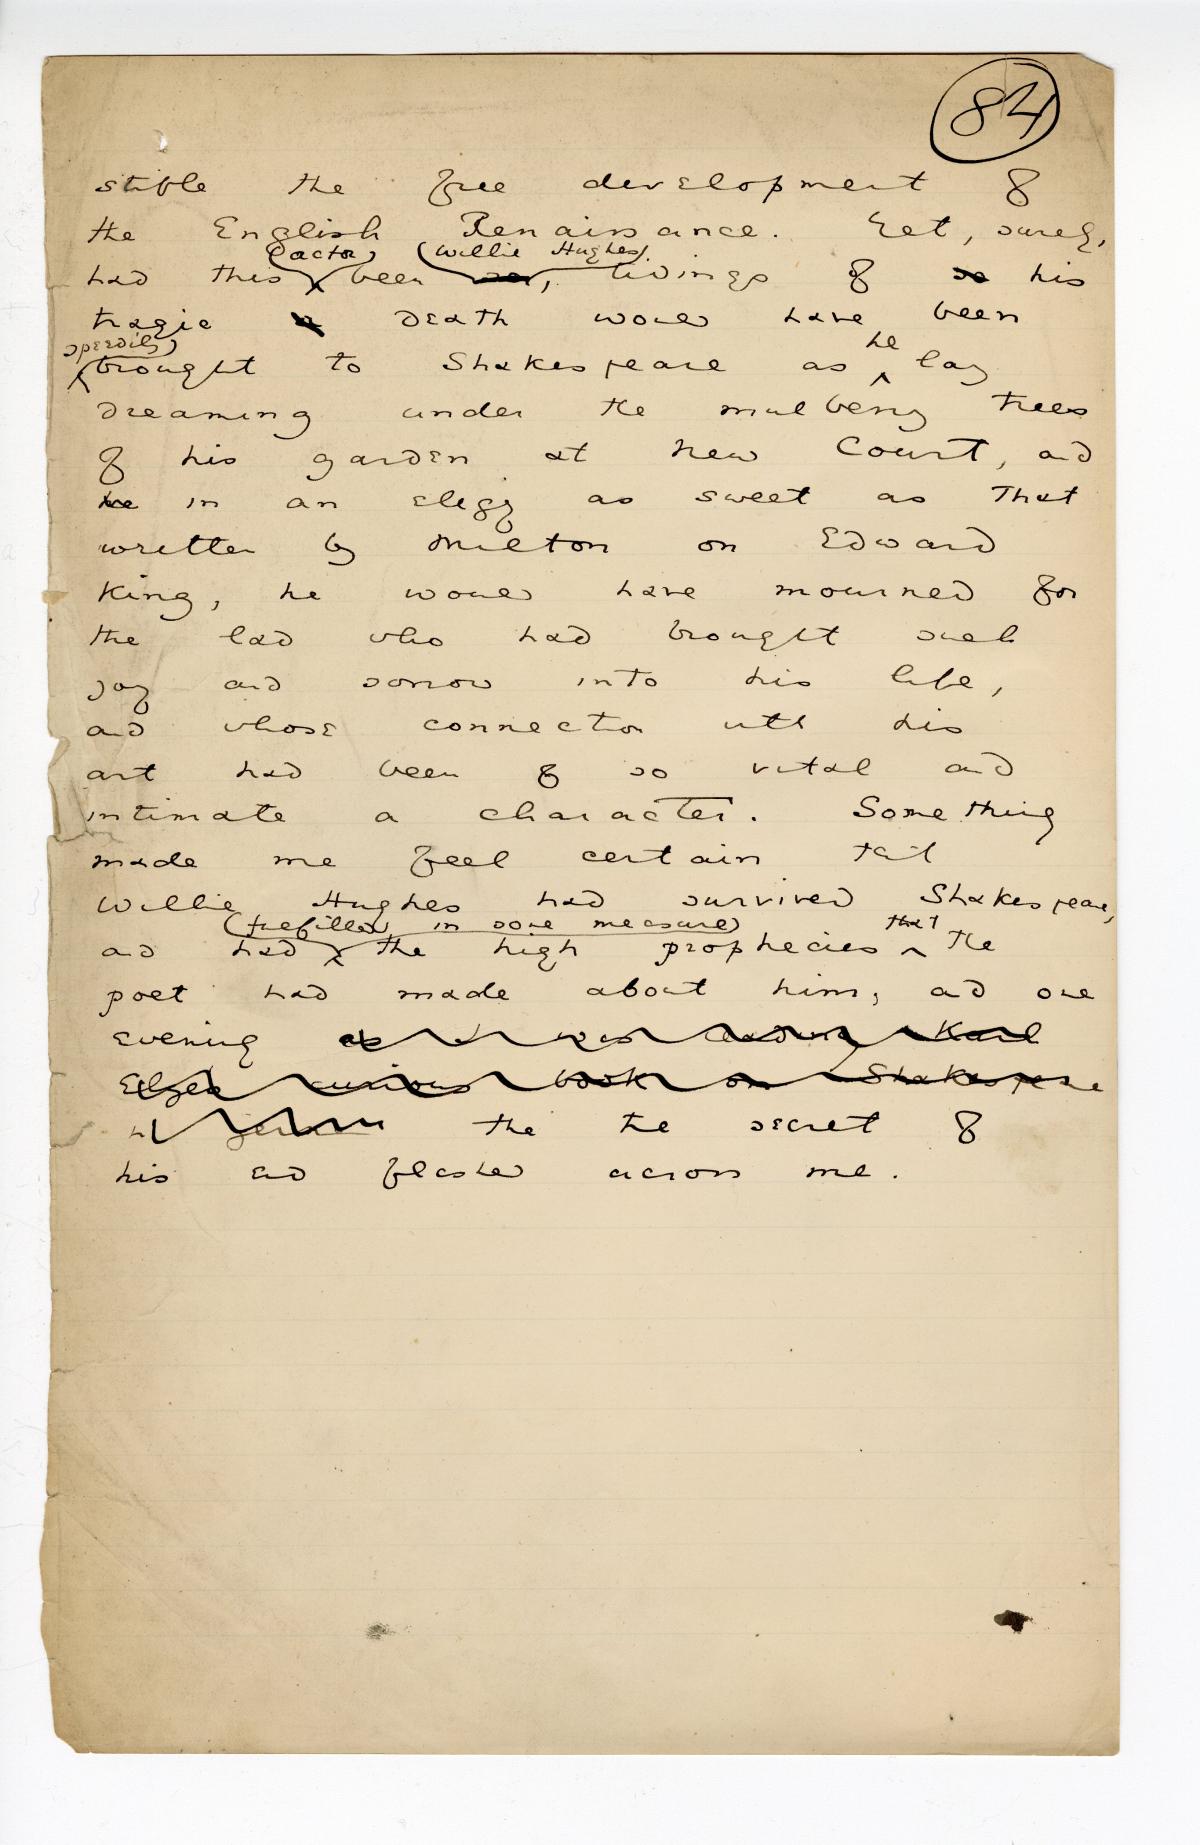 84
stifle the free development of
the English Renaissance. Yet, surely,
(actor) (Willie Hughes)
had this been so, tidings of so his
tragic death would have been
speedily he
brought to Shakespeare as lay
dreaming under the mulberry trees
of his garden at New Court, and
he in an elegy as sweet as that
written by Milton on Edward
King, he would have mourned for
the lad who had brought such
joy and sorrow into his life,
and whose connection with his
art had been of so vital and
intimate a character. Something
made me feel certain that
Willie Hughes had survived Shakespeare,
(fulfilled in some measure) that
and had the high prophecies the
poet had made about him, and one
evening as I was reading Karl
Elze's curious book on Shakespeare
in German the the secret of
his end flashed across me.